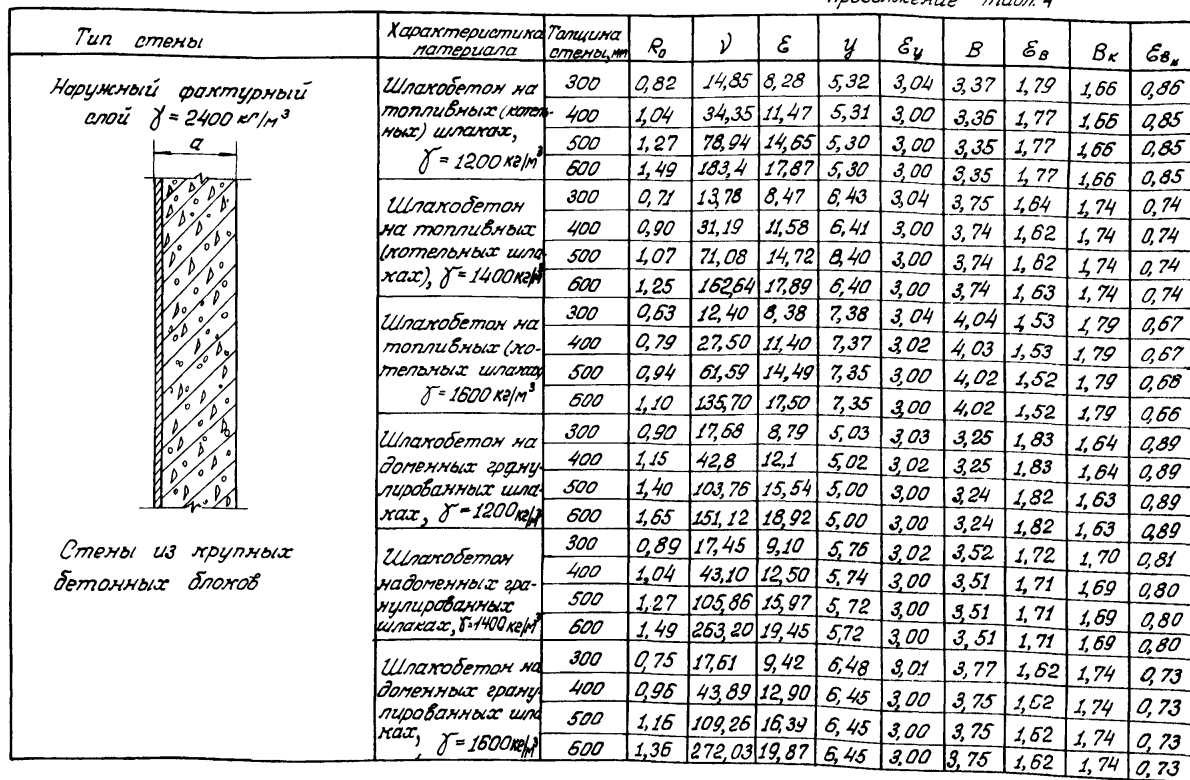 Продолжение табл. 4
Тип стены Характеристика материала Толщина стены, мм R₀ ν ε y εy B εв Bк εвк
Наружный фактурный
слой γ = 2400 кг/м³
a
Стены из крупных
бетонных блоков
Шлакобетон на
топливных (котель-
ных) шлаках,
γ = 1200 кг/м³
300 0,82 14,85 8,28 5,32 3,04 3,37 1,79 1,66 0,86
400 1,04 34,35 11,47 5,31 3,00 3,36 1,77 1,66 0,85
500 1,27 78,94 14,65 5,30 3,00 3,35 1,77 1,66 0,85
600 1,49 183,4 17,87 5,30 3,00 3,35 1,77 1,66 0,85
Шлакобетон
на топливных
(котельных шла-
ках), γ = 1400 кг/м³
300 0,71 13,78 8,47 6,43 3,04 3,75 1,64 1,74 0,74
400 0,90 31,19 11,58 6,41 3,00 3,74 1,62 1,74 0,74
500 1,07 71,08 14,72 8,40 3,00 3,74 1,62 1,74 0,74
600 1,25 162,64 17,89 6,40 3,00 3,74 1,63 1,74 0,74
Шлакобетон на
топливных (ко-
тельных шлаках)
γ = 1600 кг/м³
300 0,63 12,40 8,38 7,38 3,04 4,04 1,53 1,79 0,67
400 0,79 27,50 11,40 7,37 3,02 4,03 1,53 1,79 0,67
500 0,94 61,59 14,49 7,35 3,00 4,02 1,52 1,79 0,66
600 1,10 135,70 17,50 7,35 3,00 4,02 1,52 1,79 0,66
Шлакобетон на
доменных грану-
лированных шла-
ках, γ = 1200 кг/м³
300 0,90 17,68 8,79 5,03 3,03 3,25 1,83 1,64 0,89
400 1,15 42,8 12,1 5,02 3,02 3,25 1,83 1,64 0,89
500 1,40 103,76 15,54 5,00 3,00 3,24 1,82 1,63 0,89
600 1,65 151,12 18,92 5,00 3,00 3,24 1,82 1,63 0,89
Шлакобетон
на доменных гра-
нулированных
шлаках, γ=1400 кг/м³
300 0,89 17,45 9,10 5,76 3,02 3,52 1,72 1,70 0,81
400 1,04 43,10 12,50 5,74 3,00 3,51 1,71 1,69 0,80
500 1,27 105,86 15,97 5,72 3,00 3,51 1,71 1,69 0,80
600 1,49 263,20 19,45 5,72 3,00 3,51 1,71 1,69 0,80
Шлакобетон на
доменных грану-
лированных шла-
ках, γ = 1600 кг/м³
300 0,75 17,61 9,42 6,48 3,01 3,77 1,62 1,74 0,73
400 0,96 43,89 12,90 6,45 3,00 3,75 1,62 1,74 0,73
500 1,16 109,26 16,39 6,45 3,00 3,75 1,62 1,74 0,73
600 1,36 272,03 19,87 6,45 3,00 3,75 1,62 1,74 0,73